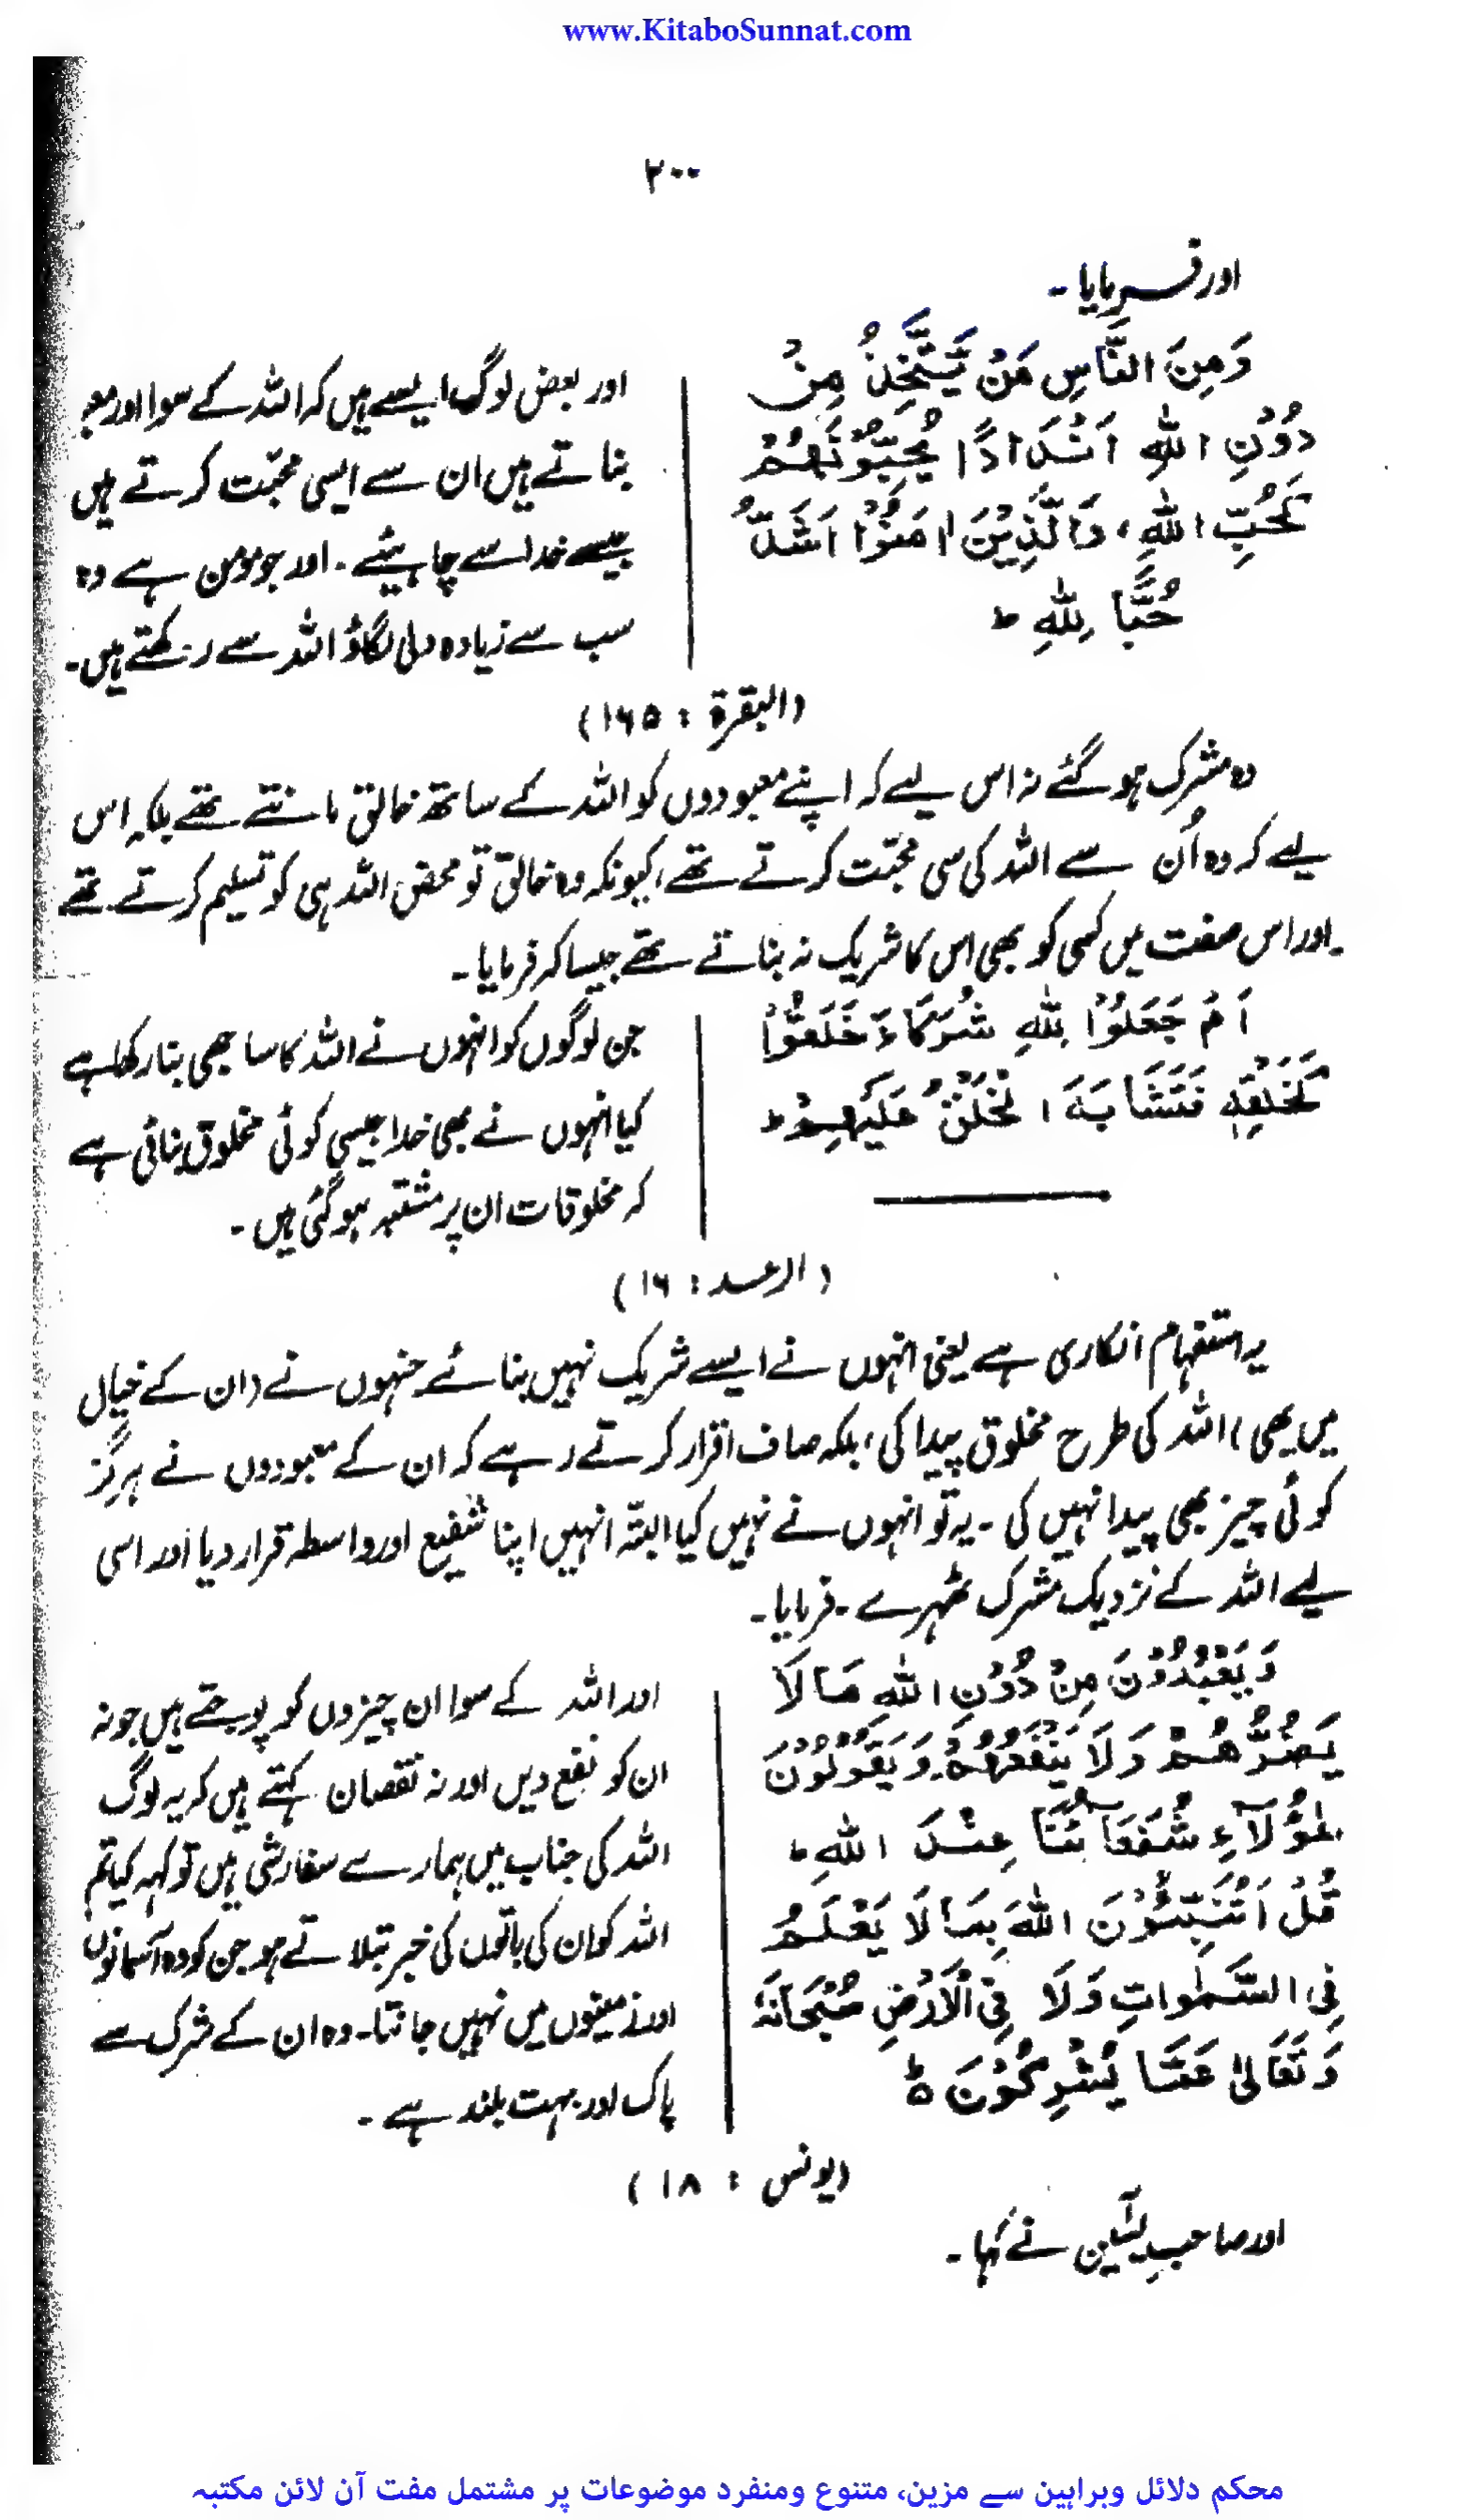 www.KitaboSunnat.com
۲۰۰
اور فرمایا ۔
وَمِنَ النَّاسِ مَنْ يَّتَّخِذُ مِنْ
دُوْنِ اللهِ اَنْدَادًا يُّحِبُّوْنَهُمْ
كَحُبِّ اللهِ، وَالَّذِيْنَ اٰمَنُوْا اَشَدُّ
حُبًّا لِلّٰهِ ط
اور بعض لوگ ایسے ہیں کہ اللہ کے سوا اور
بناتے ہیں ان سے ایسی محبّت کرتے ہیں
جیسے خدا سے چاہیئے ۔ اور جو مومن ہے وہ
سب سے زیادہ دلی لگاؤ اللہ سے رکھتے ہیں ۔
(البقرة : ۱۶۵)
وہ مشرک ہو گئے نہ اس لیے کہ اپنے معبودوں کو اللہ کے ساتھ خالق مانتے تھے بلکہ اس
لیے کہ وہ اُن سے اللہ کی سی محبّت کرتے تھے، کیونکہ وہ خالق تو محض اللہ ہی کو تسلیم کرتے تھے
اور اس صفت میں کسی کو بھی اس کا شریک نہ بناتے تھے جیسا کہ فرمایا ۔
اَمْ جَعَلُوْا لِلّٰهِ شُرَكَاءَ خَلَقُوْا
كَخَلْقِهٖ فَتَشَابَهَ الْخَلْقُ عَلَيْهِمْ ط
جن لوگوں کو انہوں نے اللہ کا ساجھی بنا رکھا ہے
کیا انہوں نے بھی خدا جیسی کوئی مخلوق بنائی ہے
کہ مخلوقات ان پر مشتبہ ہو گئی ہیں ۔
(الرعد : ۱۶)
یہ استفہام انکاری ہے یعنی انہوں نے ایسے شریک نہیں بنائے جنہوں نے (ان کے خیال
میں بھی) اللہ کی طرح مخلوق پیدا کی، بلکہ صاف اقرار کرتے رہے کہ ان کے معبودوں نے ہرگز
کوئی چیز بھی پیدا نہیں کی ۔ یہ تو انہوں نے نہیں کیا البتہ انہیں اپنا شفیع اور واسطہ قرار دیا اور اسی
لیے اللہ کے نزدیک مشرک ٹھہرے ۔ فرمایا ۔
وَيَعْبُدُوْنَ مِنْ دُوْنِ اللهِ مَا لَا
يَضُرُّهُمْ وَلَا يَنْفَعُهُمْ وَيَقُوْلُوْنَ
هٰؤُلَآءِ شُفَعَآئُنَا عِنْدَ اللهِ ط
قُلْ اَتُنَبِّئُوْنَ اللهَ بِمَا لَا يَعْلَمُ
فِى السَّمٰوَاتِ وَلَا فِى الْاَرْضِ سُبْحَانَهٗ
وَتَعَالٰى عَمَّا يُشْرِكُوْنَ ۵
اور اللہ کے سوا ان چیزوں کو پوجتے ہیں جو نہ
ان کو نفع دیں اور نہ نقصان کہتے ہیں کہ یہ لوگ
اللہ کی جناب میں ہمارے سفارشی ہیں تو کہہ کیا تم
اللہ کو ان کی باتوں کی خبر بتلاتے ہو جن کو وہ آسمانوں
اور زمینوں میں نہیں جانتا ۔ وہ ان کے شرک سے
پاک اور بہت بلند ہے ۔
(یونس : ۱۸)
اور صاحبِ یٰسین نے کہا ۔
محکم دلائل وبراہین سے مزین، متنوع ومنفرد موضوعات پر مشتمل مفت آن لائن مکتبہ